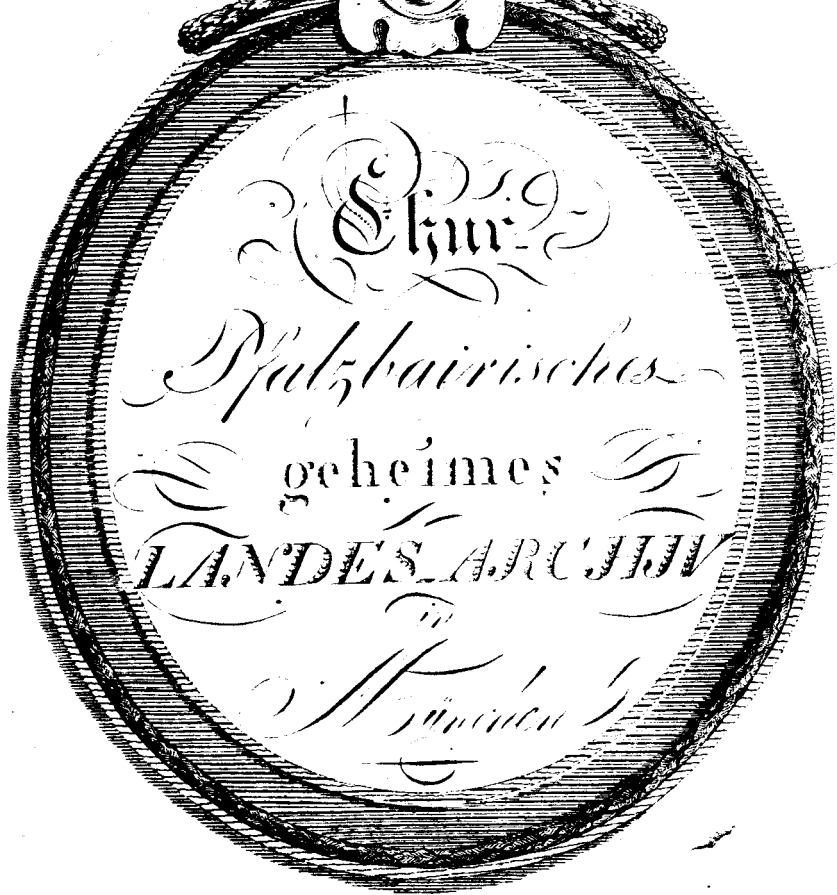 Chur-
Pfalzbairisches
geheimes
LANDES-ARCHIV
in
München